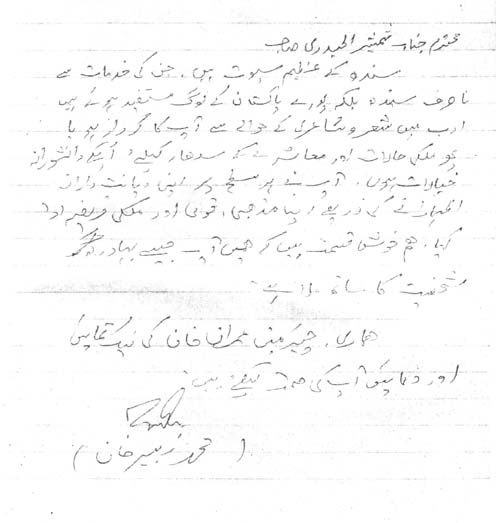 محترم جناب شمشیر الحیدری صاحب
سندھ کے عظیم سپوت ہیں، جن کی خدمات سے
نا صرف سندھ بلکہ پورے پاکستان کے لوگ مستفید ہوئے ہیں
ادب میں شعر و شاعری کے حوالے سے آپ کا کردار ہو یا
پھر ملکی حالات اور معاشرے کے سدھار کیلئے آپکے دانشورانہ
خیالات ہوں۔ آپ نے ہر سطح پر اپنی دیانت دارانہ
اظہار رائے کے ذریعے اپنا مذہبی، قومی اور ملکی فریضہ ادا
کیا۔ ہم خوش قسمت ہیں کہ ہمیں آپ جیسے بہادر
شخصیت کا ساتھ ملا ہے۔
ہماری، چیئرمین عمران خان کی نیک تمنائیں
اور دعائیں آپ کی صحت کیلئے ہیں۔
(محمد زبیر خان)